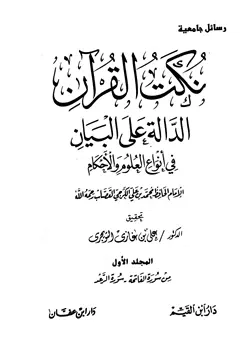 رسائل جامعية
نكت القرآن
الدالة على البيان
في أنواع العلوم والأحكام
الإمام الحافظ محمد بن علي الكرجي القصاب رحمه الله
تحقيق
الدكتور / علي بن غازي التويجري
المجلد الأول
من سورة الفاتحة - سورة الرعد
دار ابن القيم
دار ابن عفان